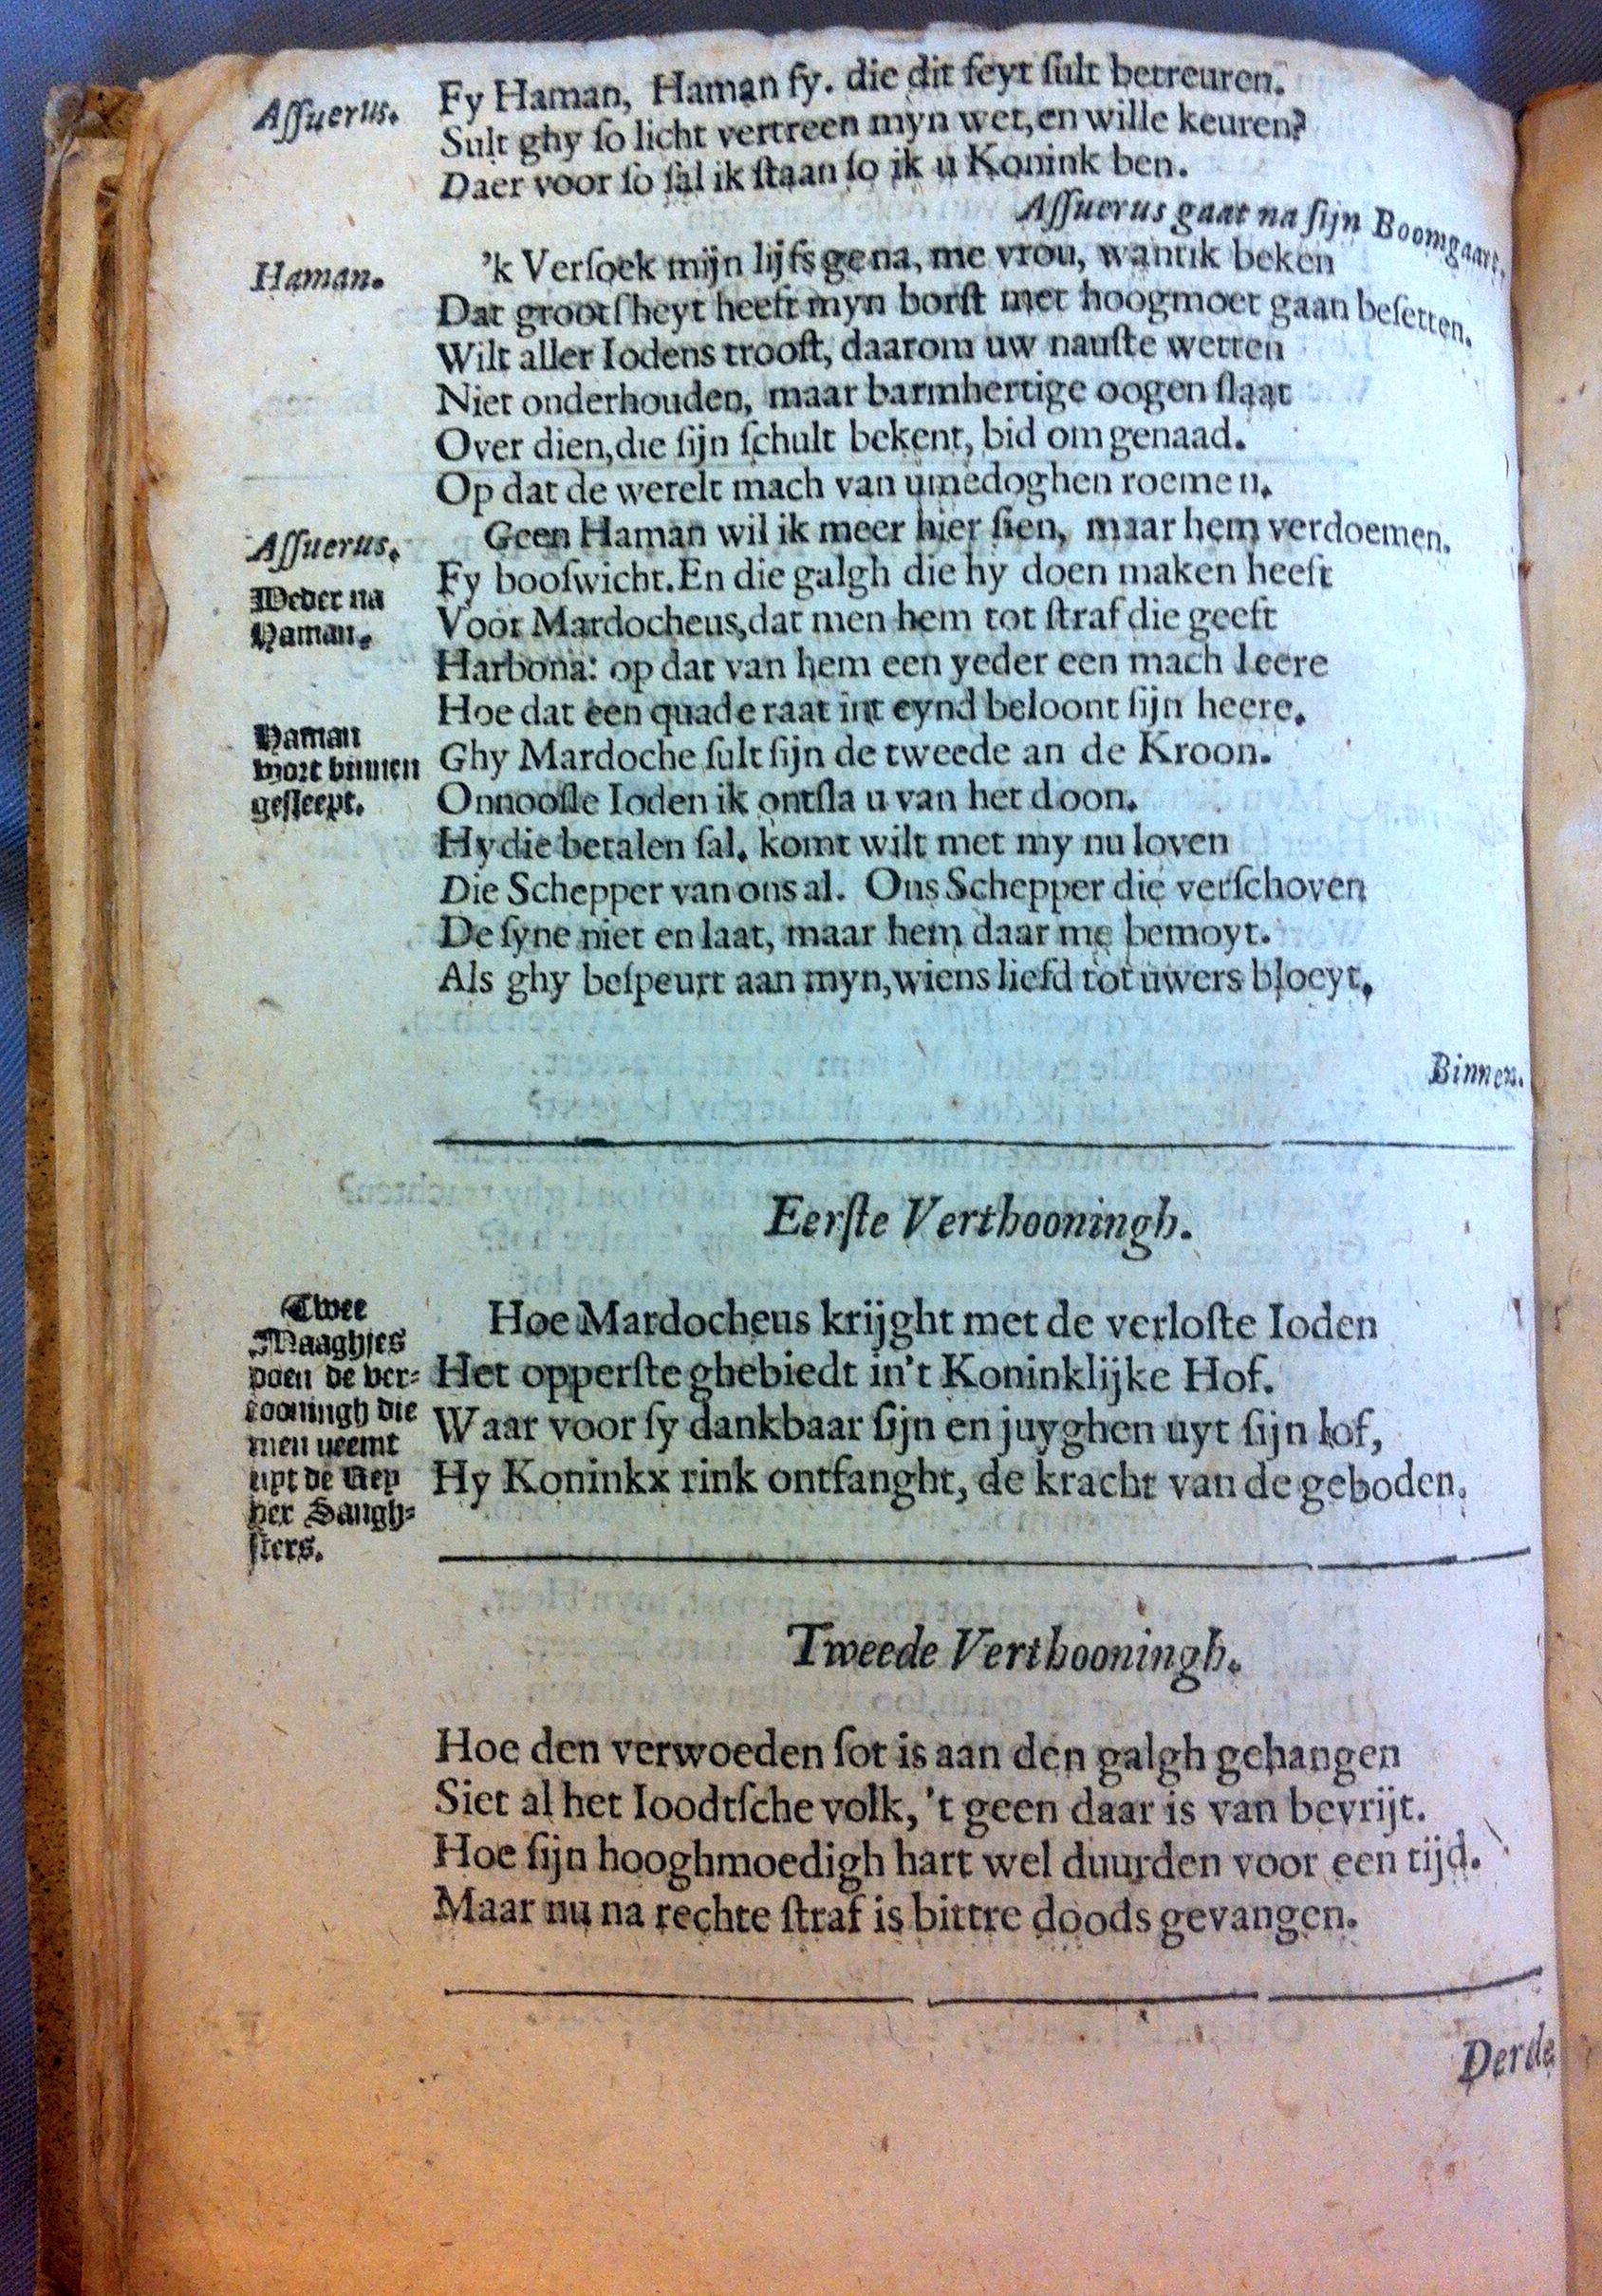 Aſſuerus. Fy Haman, Haman fy. die dit feyt ſult betreuren.
Sult ghy ſo licht vertreen myn wet, en wille keuren?
Daer voor ſo ſal ik ſtaan ſo ik u Konink ben.
Aſſuerus gaat na ſijn Boomgaart.
Haman. 'k Verſoek mijn lijfs gena, me vrou, want ik beken
Dat grootſheyt heeft myn borſt met hoogmoet gaan beſetten.
Wilt aller Iodens trooſt, daarom uw nauſte wetten
Niet onderhouden, maar barmhertige oogen ſlaat
Over dien, die ſijn ſchult bekent, bid om genaad.
Op dat de werelt mach van u medoghen roemen.
Aſſuerus. Geen Haman wil ik meer hier ſien, maar hem verdoemen.
Weder na
Haman.
Fy booſwicht. En die galgh die hy doen maken heeft
Voor Mardocheus, dat men hem tot ſtraf die geeft
Harbona: op dat van hem een yeder een mach leere
Hoe dat een quade raat int eynd beloont ſijn heere.
Haman
wort binnen
geſleept.
Ghy Mardoche ſult ſijn de tweede an de Kroon.
Onnooſle Ioden ik ontſla u van het doon.
Hy die betalen ſal. komt wilt met my nu loven
Die Schepper van ons al. Ons Schepper die verſchoven
De ſyne niet en laat, maar hem daar me bemoyt.
Als ghy beſpeurt aan myn, wiens liefd tot uwers bloeyt.
Binnen.
Eerſte Verthooningh.
Twee
Maaghjes
doen de ver-
tooningh die
men neemt
uyt de Rey
der Sangh-
ſters.
Hoe Mardocheus krijght met de verloſte Ioden
Het opperſte ghebiedt in't Koninklijke Hof.
Waar voor ſy dankbaar ſijn en juyghen uyt ſijn lof,
Hy Koninkx rink ontfanght, de kracht van de geboden.
Tweede Verthooningh.
Hoe den verwoeden ſot is aan den galgh gehangen
Siet al het Ioodtſche volk, 't geen daar is van bevrijt.
Hoe ſijn hooghmoedigh hart wel duurden voor een tijd.
Maar nu na rechte ſtraf is bittre doods gevangen.
Derde